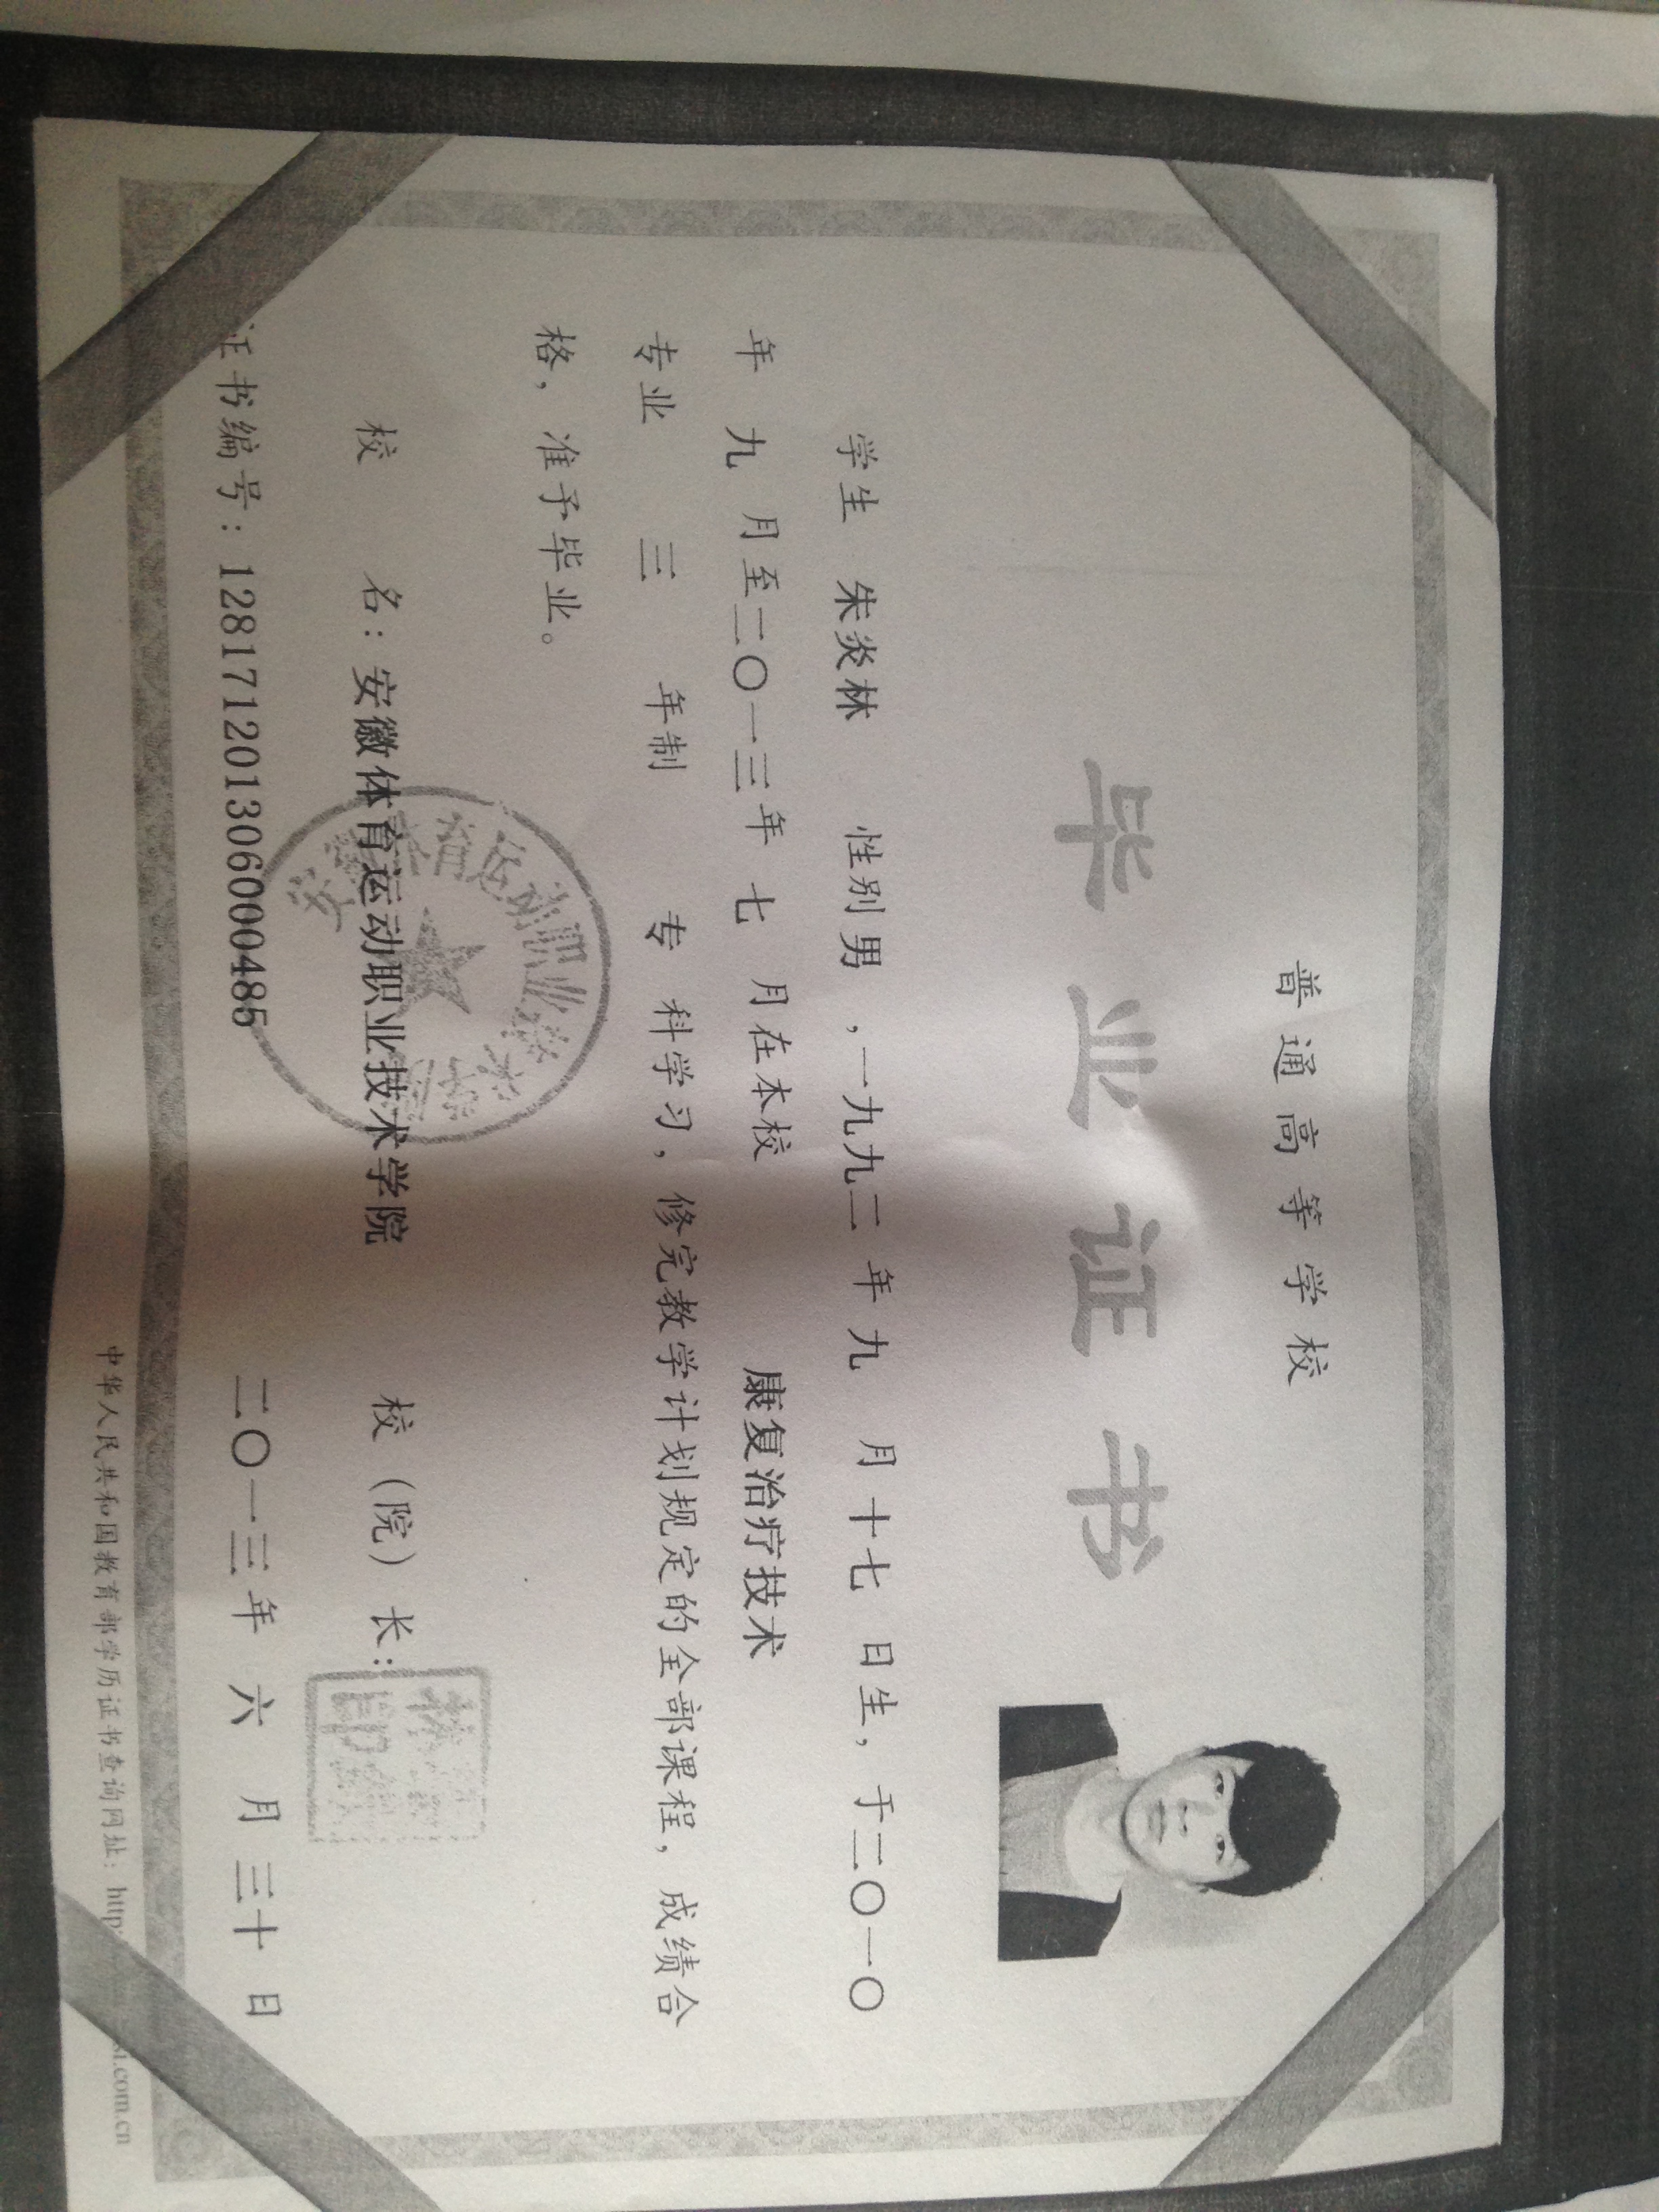 普通高等学校
毕业证书
学生 朱炎林 性别男，一九九二年九月十七日生，于二〇一〇
年九月至二〇一三年七月在本校 康复治疗技术
专业 三 年制 专 科学习，修完教学计划规定的全部课程，成绩合
格，准予毕业。
校 名：安徽体育运动职业技术学院 校（院）长：
证书编号：128171201306000485 二〇一三年 六 月 三十 日
中华人民共和国教育部学历证书查询网址：http: si.com.cn